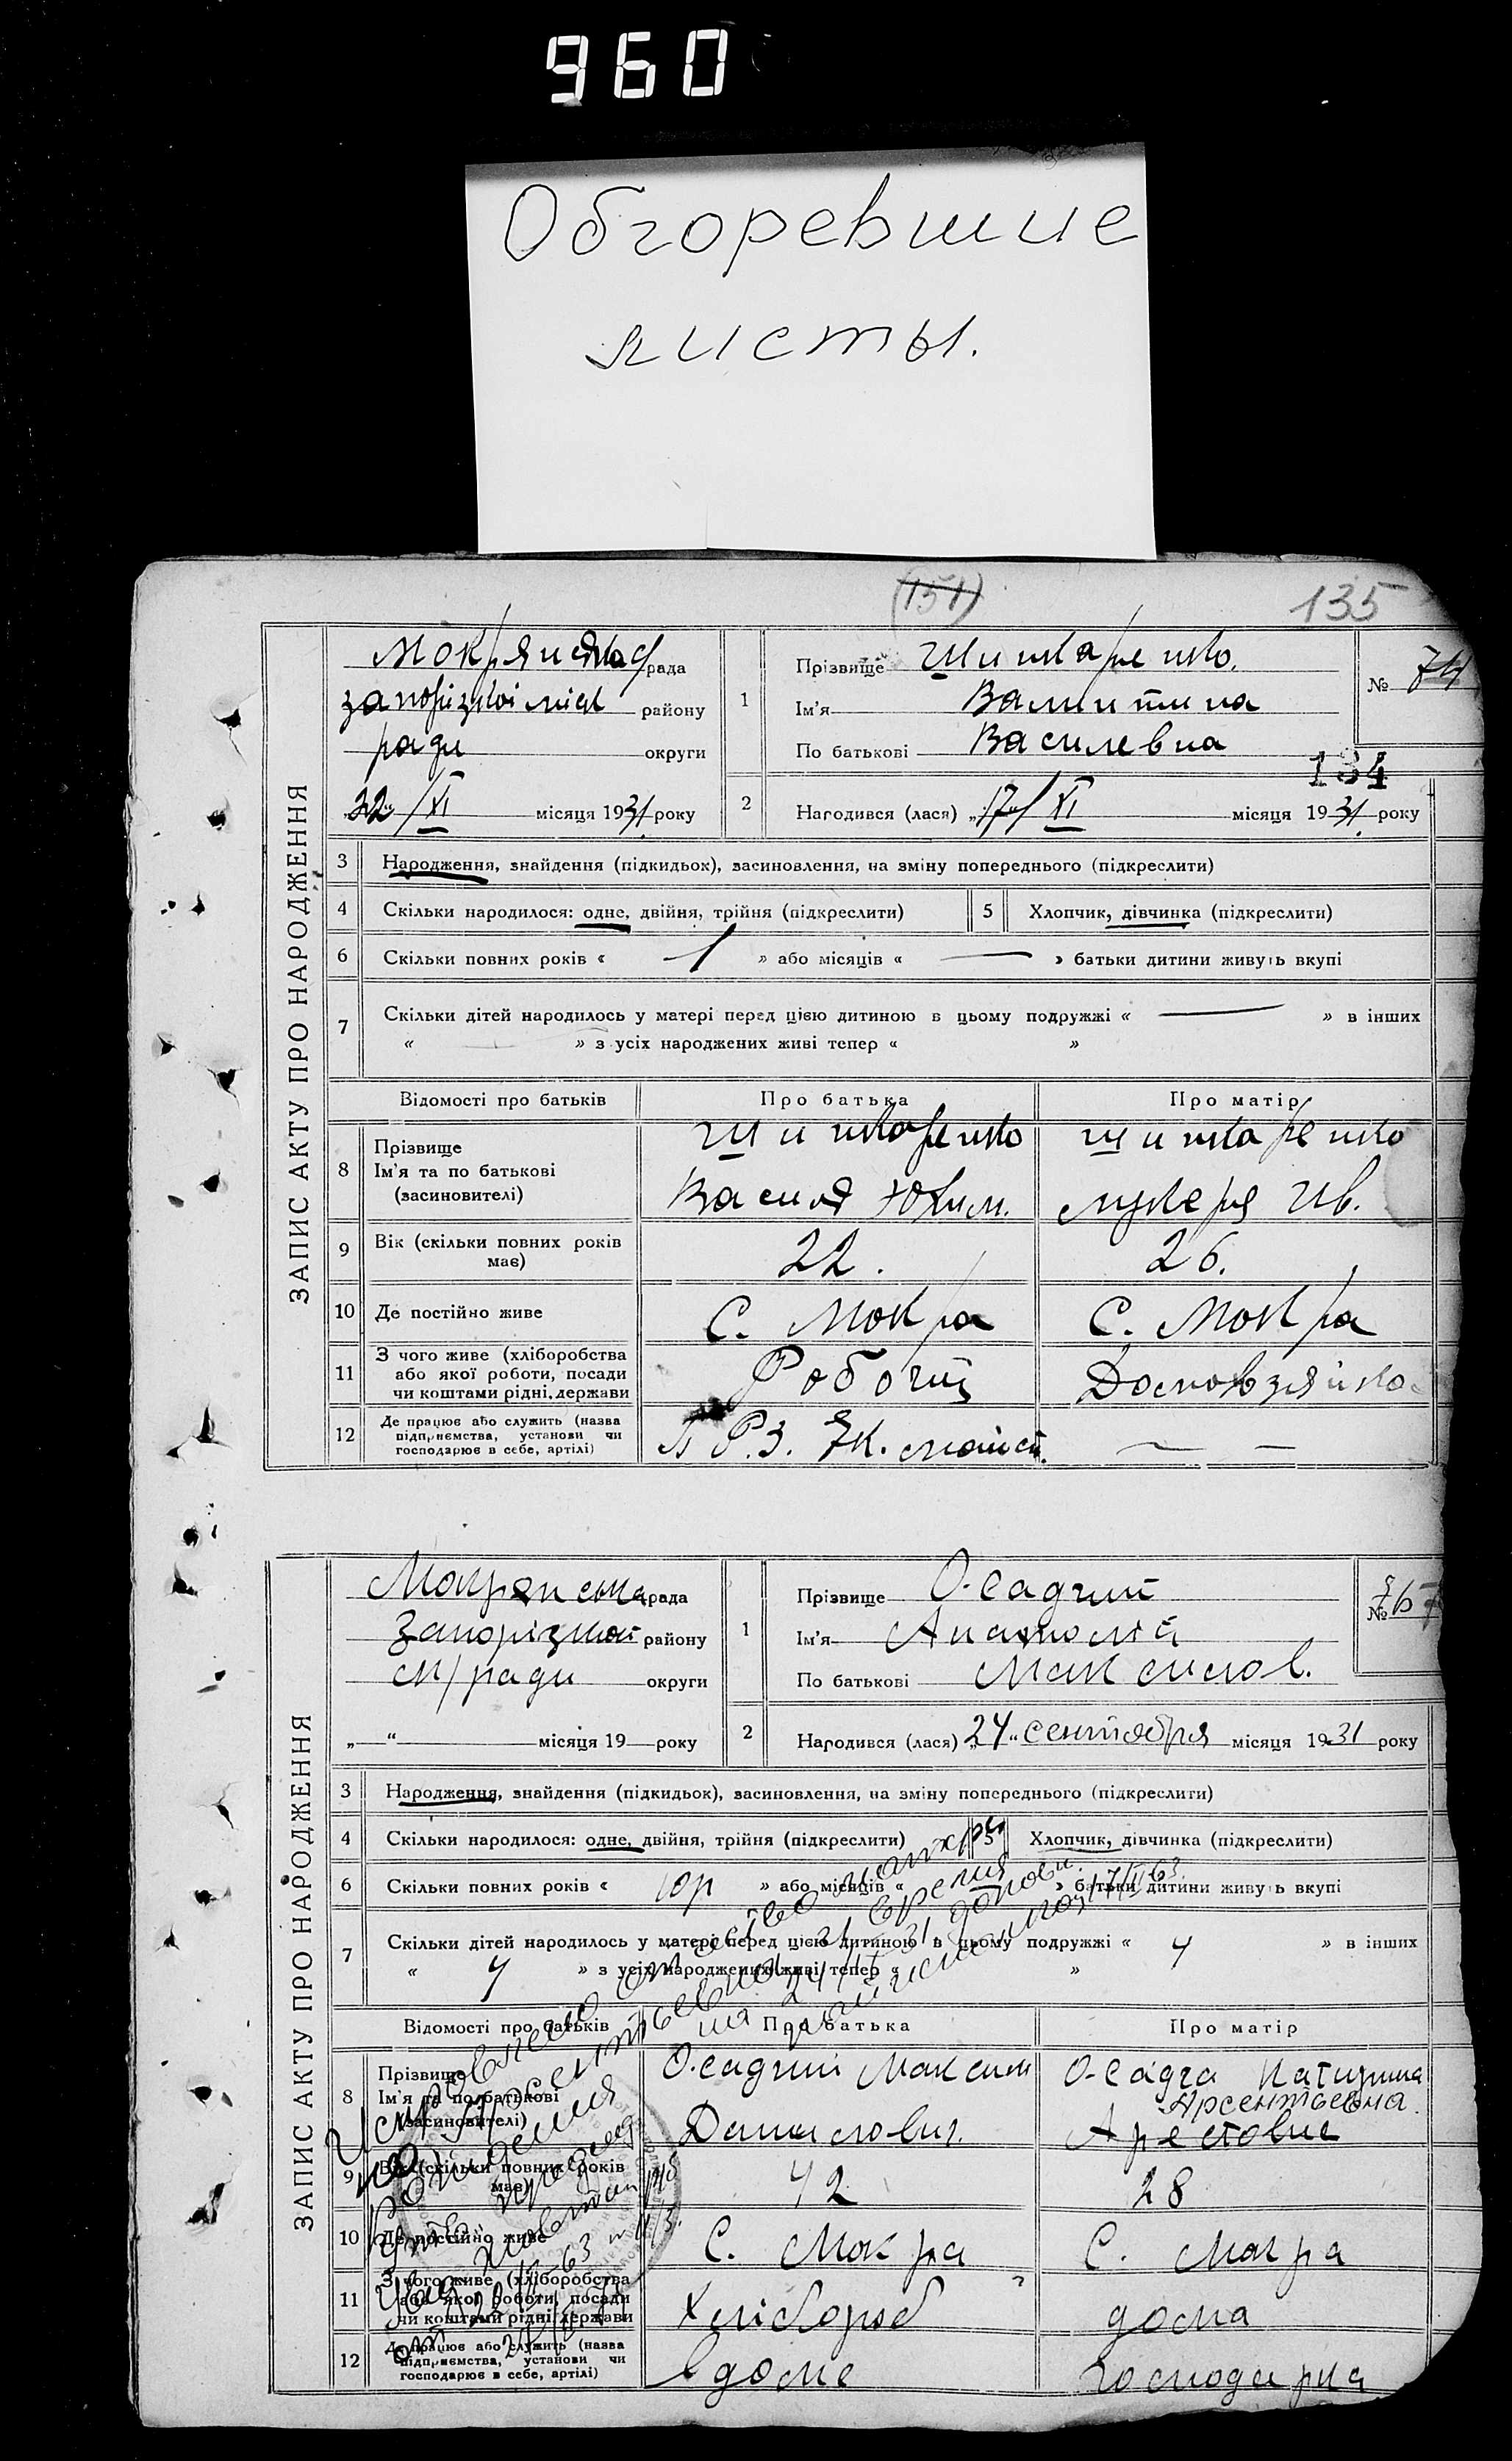 960
Обгоревшие
листы.
(151)
135
ЗАПИС АКТУ ПРО НАРОДЖЕННЯ
Мокрянська рада
запорізької міськ району
ради округи
22/XI місяця 1931 року
1
Прізвище Шинкаренко.
Ім'я Валинтина
По батькові Василевна
№ 74
134
2
Народився (лася) „17“/XI місяця 1931 року
3 Народження, знайдення (підкидьок), засиновлення, на зміну попереднього (підкреслити)
4 Скільки народилося: одне, двійня, трійня (підкреслити)
5 Хлопчик, дівчинка (підкреслити)
6 Скільки повних років « 1 » або місяців « — » батьки дитини живуть вкупі
7 Скільки дітей народилось у матері перед цією дитиною в цьому подружжі « — » в інших
« — » з усіх народжених живі тепер « »
Відомості про батьків
Про батька
Про матір
8 Прізвище
Ім'я та по батькові
(засиновителі)
Шинкаренко
Василь Юхим.
Шинкаренко
Лукеря Ив.
9 Вік (скільки повних років
має)
22.
26.
10 Де постійно живе
С. Мокра
С. Мокра
11 З чого живе (хліборобства
або якої роботи, посади
чи коштами рідні, держави
Робочий
Домохозяйка
12 Де працює або служить (назва
підприємства, установи чи
господарює в себе, артілі)
П Р.З.
— —
ЗАПИС АКТУ ПРО НАРОДЖЕННЯ
Мокрянська рада
Запорізької району
м/ради округи
„—“ місяця 19 — року
1
Прізвище Осадчий
Ім'я Анатолій
По батькові Максимов.
№
2
Народився (лася) „24“ сентября місяця 1931 року
3 Народження, знайдення (підкидьок), засиновлення, на зміну попереднього (підкреслити)
4 Скільки народилося: одне, двійня, трійня (підкреслити)
5 Хлопчик, дівчинка (підкреслити)
6 Скільки повних років « 10р » або місяців « » батьки дитини живуть вкупі
7 Скільки дітей народилось у матері перед цією дитиною в цьому подружжі « 4 » в інших
« 4 » з усіх народжених живі тепер « »
Відомості про батьків
Про батька
Про матір
8 Прізвище
Ім'я та по батькові
(засиновителі)
Осадчий Максим
Данилович.
Осадча Катирина
Арсентьевна.
Арестовне
9 Вік (скільки повних років
має)
42
28
10 Де постійно живе
С. Мокра
С. Мокра
11 З чого живе (хліборобства
або якої роботи, посади
чи коштами рідні, держави
Хлібороб
дома
12 Де працює або служить (назва
підприємства, установи чи
господарює в себе, артілі)
В доме
господарка
Исправлено отчество матери
на Арсентьевна, время
рождения на 24/IX-31